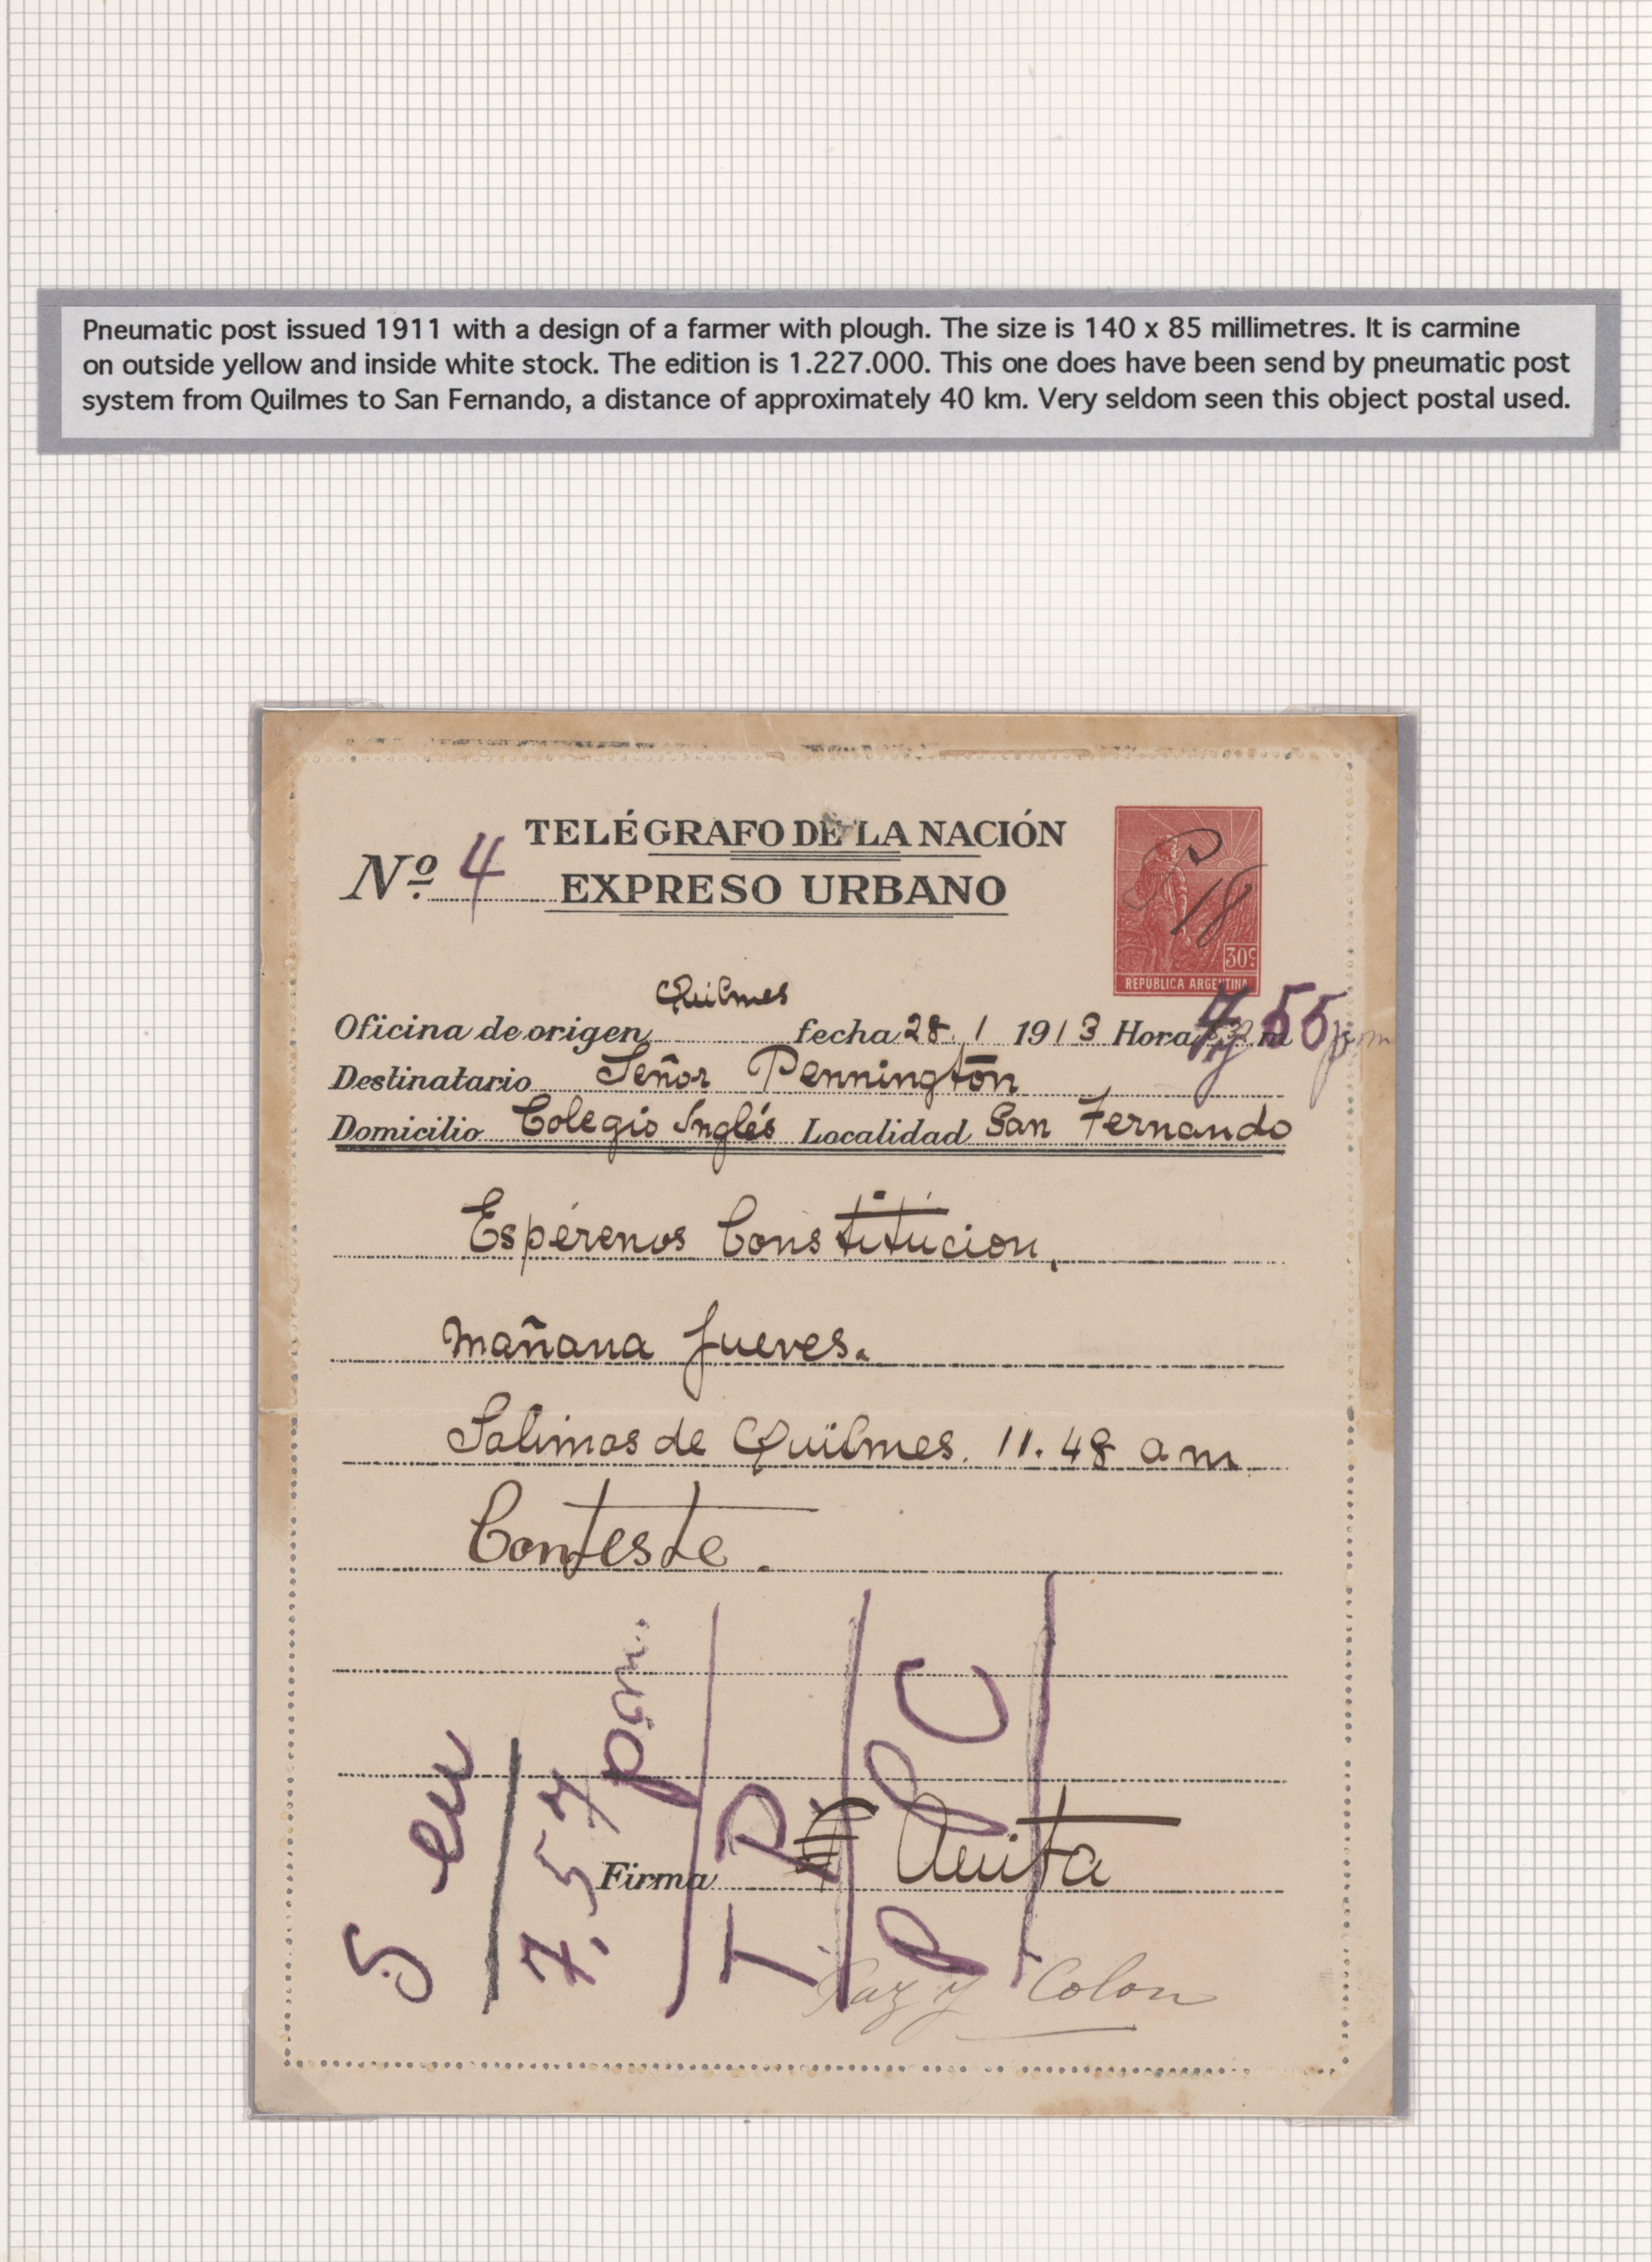 Pneumatic post issued 1911 with a design of a farmer with plough. The size is 140 x 85 millimetres. It is carmine
on outside yellow and inside white stock. The edition is 1.227.000. This one does have been send by pneumatic post
system from Quilmes to San Fernando, a distance of approximately 40 km. Very seldom seen this object postal used.
TELÉGRAFO DE LA NACIÓN
Nº. 4 EXPRESO URBANO
18
30c
REPUBLICA ARGENTINA
Oficina de origen Quilmes fecha 28 1 1913 Hora 7,55 pm
Destinatario Señor Pennington
Domicilio Colegio Inglés Localidad San Fernando
Espérenos Constitución,
mañana jueves.
Salimos de Quilmes. 11.48 a m
Conteste.
Firma Anita
5 eu
7.57 pm.
T P
P P C
y Colon